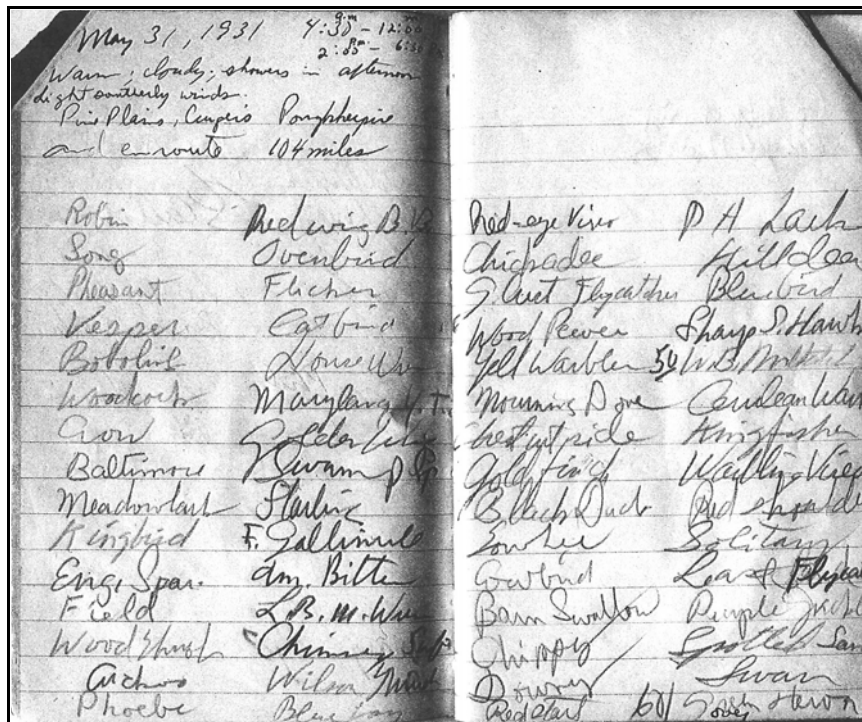 May 31, 1931 4:30 - 12:00
2:00 - 6:30
Warm; cloudy; showers in afternoon
light southerly winds.
Pine Plains, Poughkeepsie
and enroute 104 miles
Robin
Song
Pheasant
Vesper
Bobolink
Woodcock
Crow
Baltimore
Meadowlark
Kingbird
Eng. Spar.
Field
Wood Thrush
Cuckoo
Phoebe
Redwing B. B.
Ovenbird
Flicker
Catbird
House Wr
Maryland Y. T.
Golden
Swamp Sp
Starling
F. Gallinule
Am. Bitte
L. B. M. Wr
Chimney
Wilson Thrush
Blue Jay
Red-eye Vireo
Chickadee
G. Crest Flycatcher
Wood Peewee
Yell Warbler
Mourning Dove
Chestnut side
Goldfinch
Black Duck
Towhee
Cowbird
Barn Swallow
Chippy
Downy
Redstart
P H Lark
Killdeer
Bluebird
Sharp S. Hawk
50 W. B.
Cerulean War
Kingfisher
Warbling Vireo
Red should
Solitary
Least Flycat
Purple
Spotted San
Swan
60 Green Heron